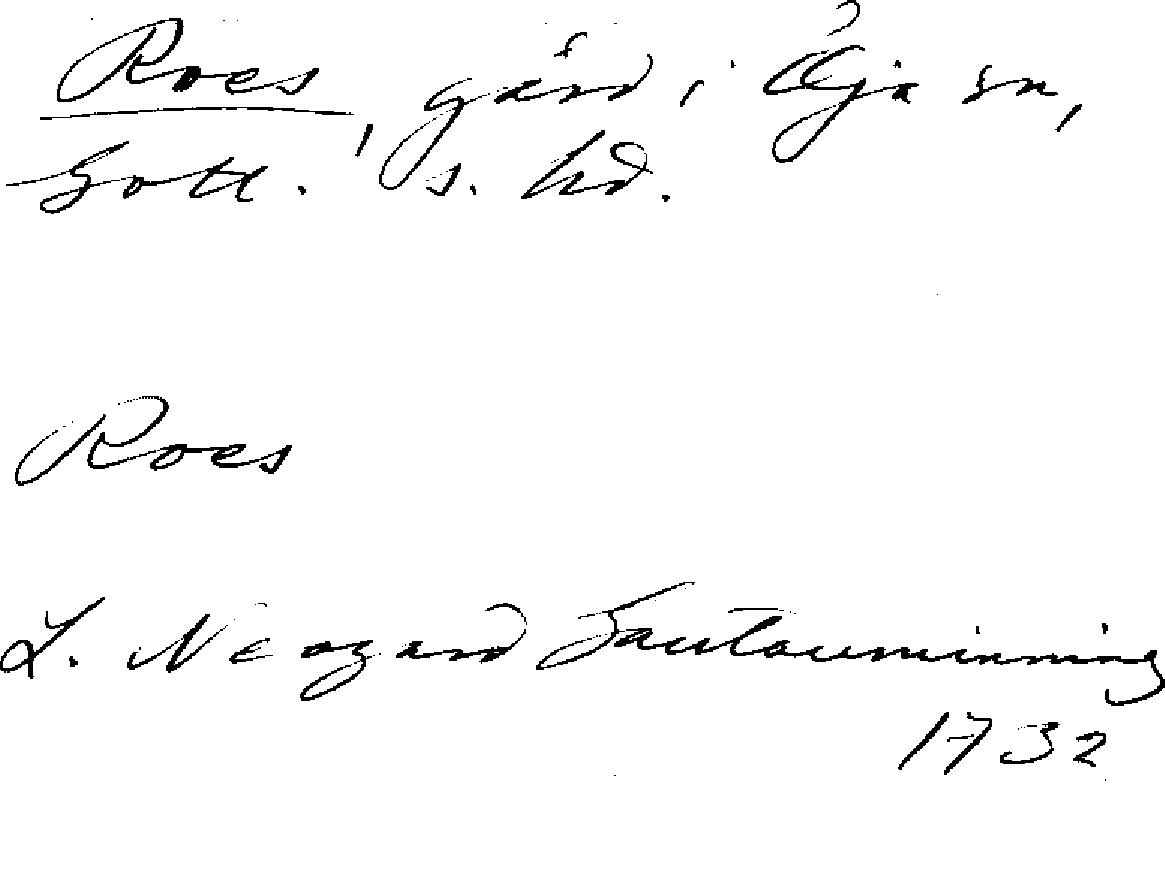 Roes, gård i Öja sn,
Gotl. s. hd.
Roes
L. Neogard Gautauminning
1732